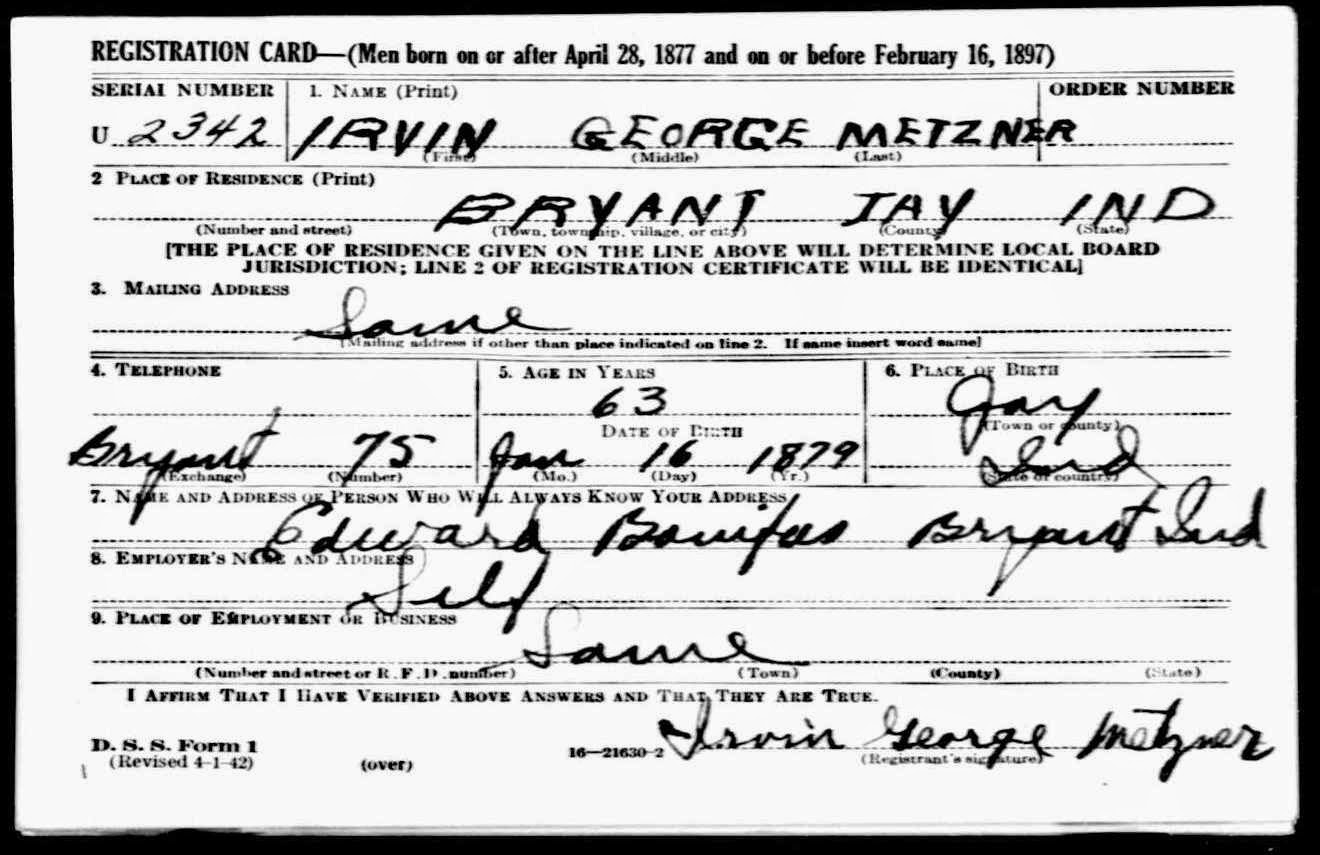 REGISTRATION CARD—(Men born on or after April 28, 1877 and on or before February 16, 1897)
SERIAL NUMBER 1. NAME (Print) ORDER NUMBER
U 2342 IRVIN GEORGE METZNER
(First) (Middle) (Last)
2 PLACE OF RESIDENCE (Print)
BRYANT JAY IND
(Number and street) (Town, township, village, or city) (County) (State)
[THE PLACE OF RESIDENCE GIVEN ON THE LINE ABOVE WILL DETERMINE LOCAL BOARD
JURISDICTION; LINE 2 OF REGISTRATION CERTIFICATE WILL BE IDENTICAL]
3. MAILING ADDRESS
Same
[Mailing address if other than place indicated on line 2. If same insert word same]
4. TELEPHONE 5. AGE IN YEARS 6. PLACE OF BIRTH
63 Jay
DATE OF BIRTH (Town or county)
Bryant 75 Jan 16 1879 Ind
(Exchange) (Number) (Mo.) (Day) (Yr.) (State or country)
7. NAME AND ADDRESS OF PERSON WHO WILL ALWAYS KNOW YOUR ADDRESS
Edward Bonifas Bryant Ind
8. EMPLOYER'S NAME AND ADDRESS
Self
9. PLACE OF EMPLOYMENT OR BUSINESS
Same
(Number and street or R. F. D. number) (Town) (County) (State)
I AFFIRM THAT I HAVE VERIFIED ABOVE ANSWERS AND THAT THEY ARE TRUE.
Irvin George Metzner
D. S. S. Form 1 16—21630-2 (Registrant's signature)
(Revised 4-1-42) (over)